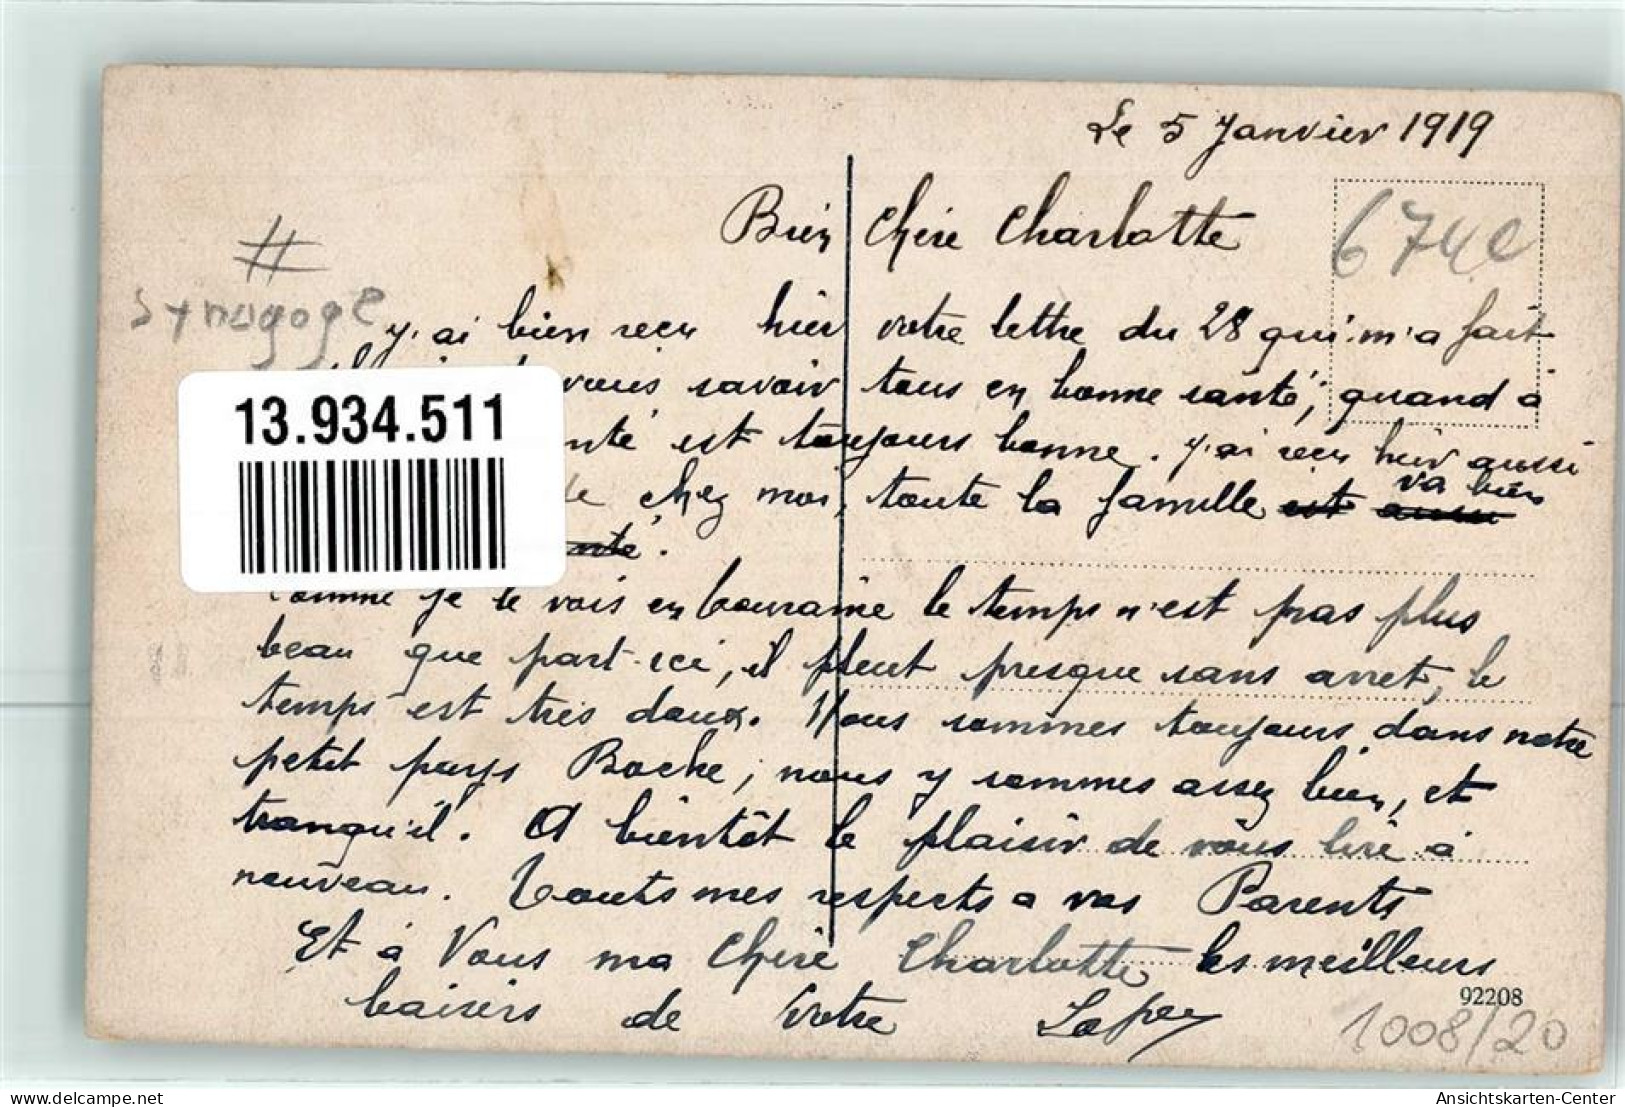 Le 5 Janvier 1919
Bien Chère Charlotte
6740
#
Synagoge
J'ai bien reçu hier votre lettre du 28 qui m'a fait
vous savoir tous en bonne santé, quand à
13.934.511
nté est toujours bonne. J'ai reçu hier aussi
de chez moi, toute la famille est aussi va bien
nté.
Comme je le vois en Touraine le temps n'est pas plus
beau que part ici, il pleut presque sans arret, le
temps est très doux. Nous sommes toujours dans notre
petit pays Boche, nous y sommes assez bien, et
tranquil. A bientôt le plaisir de vous lire à
nouveau. Touts mes respects a vos Parents
Et à Vous ma Chère Charlotte les meilleurs
baisers de Votre
92208
1008/20
Ansichtskarten-Center